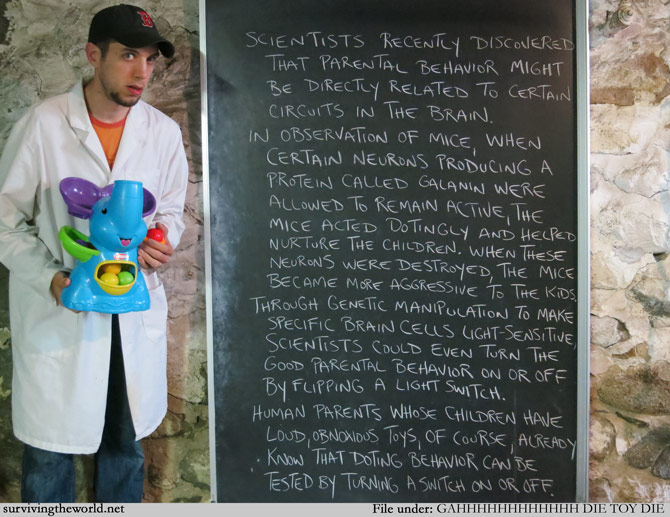 SCIENTISTS RECENTLY DISCOVERED
THAT PARENTAL BEHAVIOR MIGHT
BE DIRECTLY RELATED TO CERTAIN
CIRCUITS IN THE BRAIN.
IN OBSERVATION OF MICE, WHEN
CERTAIN NEURONS PRODUCING A
PROTEIN CALLED GALANIN WERE
ALLOWED TO REMAIN ACTIVE, THE
MICE ACTED DOTINGLY AND HELPED
NURTURE THE CHILDREN. WHEN THESE
NEURONS WERE DESTROYED, THE MICE
BECAME MORE AGGRESSIVE TO THE KIDS.
THROUGH GENETIC MANIPULATION TO MAKE
SPECIFIC BRAIN CELLS LIGHT-SENSITIVE,
SCIENTISTS COULD EVEN TURN THE
GOOD PARENTAL BEHAVIOR ON OR OFF
BY FLIPPING A LIGHT SWITCH.
HUMAN PARENTS WHOSE CHILDREN HAVE
LOUD, OBNOXIOUS TOYS, OF COURSE, ALREADY
KNOW THAT DOTING BEHAVIOR CAN BE
TESTED BY TURNING A SWITCH ON OR OFF.
survivingtheworld.net
File under: GAHHHHHHHHHHHHH DIE TOY DIE